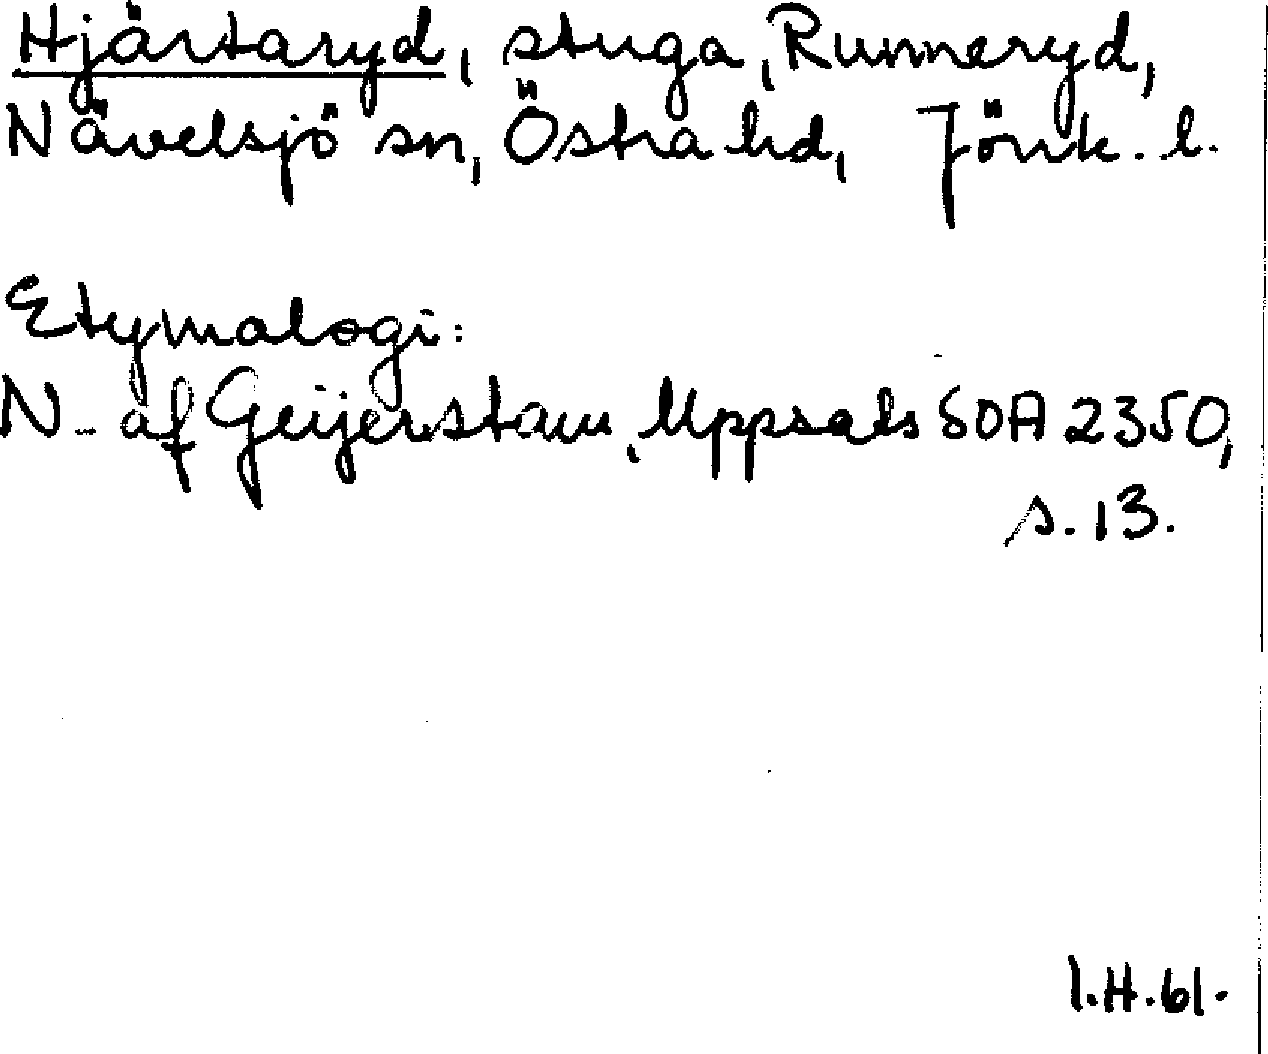 Hjärtaryd, stuga, Runneryd,
Nävelsjö sn, Östra hd, Jönk. l.
Etymologi:
N. af Geijerstam, Uppsats SOA 2350,
s. 13.
I.H.61.